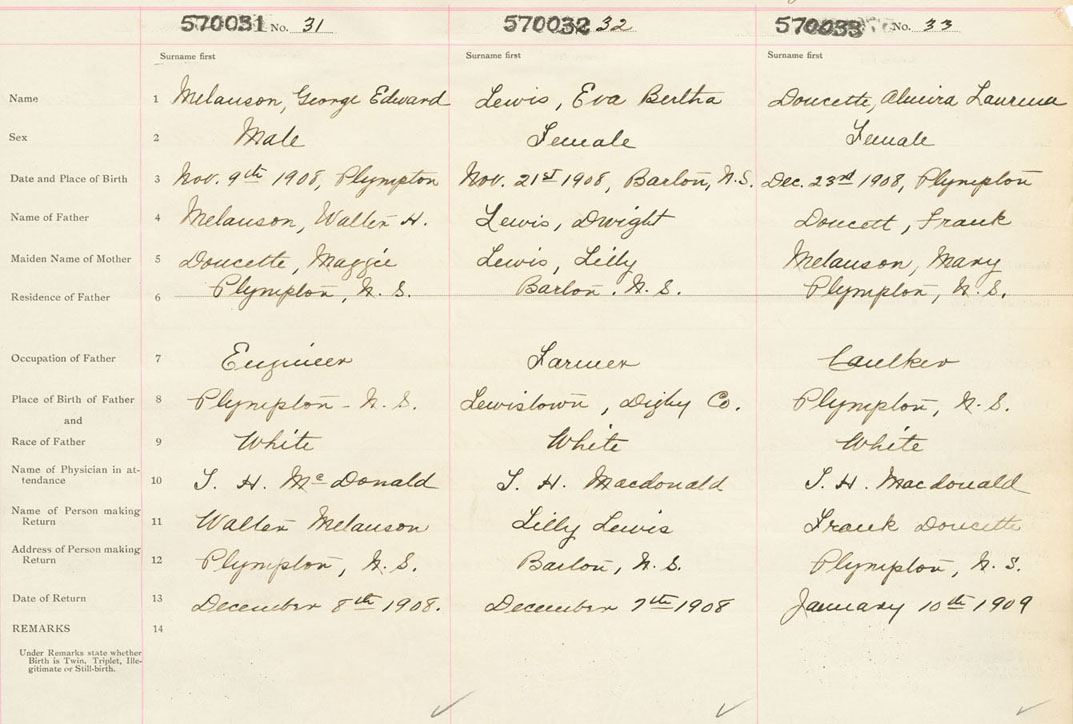 570031 No. 31 570032 32 570033 No. 33
Surname first Surname first Surname first
Name 1 Melanson, George Edward Lewis, Eva Bertha Doucette, Almira Laurina
Sex 2 Male Female Female
Date and Place of Birth 3 Nov. 9th 1908, Plympton Nov. 21st 1908, Barton, N.S. Dec. 23rd 1908, Plympton
Name of Father 4 Melanson, Walter H. Lewis, Dwight Doucett, Frank
Maiden Name of Mother 5 Doucette, Maggie Lewis, Lilly Melanson, Mary
Residence of Father 6 Plympton, N.S. Barton. N.S. Plympton, N.S.
Occupation of Father 7 Engineer Farmer Caulker
Place of Birth of Father 8 Plympton - N.S. Lewistown, Digby Co. Plympton, N.S.
and
Race of Father 9 White White White
Name of Physician in at-
tendance 10 S. H. McDonald S. H. Macdonald S. H. Macdonald
Name of Person making
Return 11 Walter Melanson Lilly Lewis Frank Doucette
Address of Person making
Return 12 Plympton, N.S. Barton, N.S. Plympton, N.S.
Date of Return 13 December 8th 1908. December 7th 1908 January 10th 1909
REMARKS 14
Under Remarks state whether
Birth is Twin, Triplet, Ille-
gitimate or Still-birth.